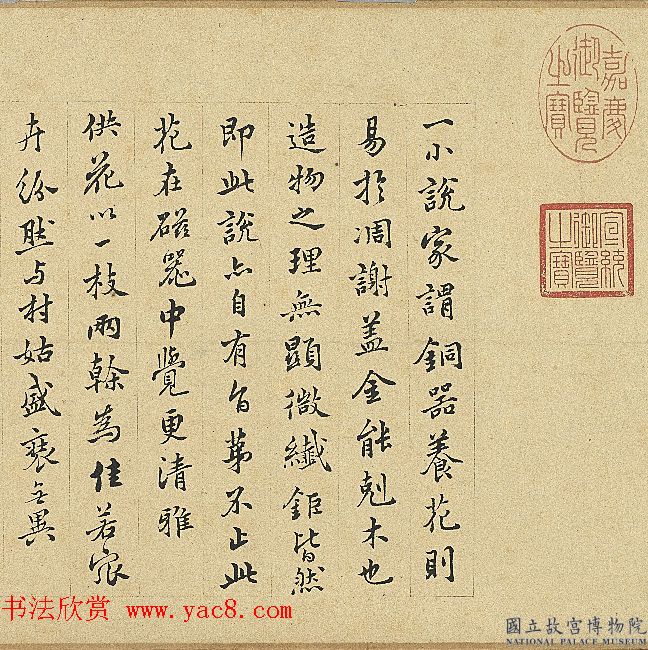 嘉慶
御覽
之寶
宣統
御覽
之寶
一小說家謂銅器養花則
易於凋謝蓋金能剋木也
造物之理無顯微纖鉅皆然
即此說亦自有旨第不止此
花在磁器中覺更清雅
供花以一枝兩榦為佳若眾
卉紛然与村姑盛無異
书法欣赏 www.yac8.com
國立故宮博物院
NATIONAL PALACE MUSEUM